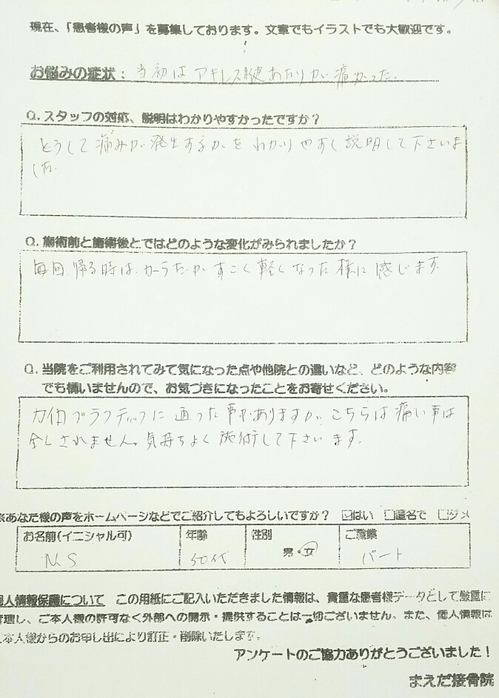 現在、「患者様の声」を募集しております。文章でもイラストでも大歓迎です。
お悩みの症状： 当初はアキレス腱あたりが痛かった。
Q. スタッフの対応、説明はわかりやすかったですか？
どうして痛みが発生するかをわかりやすく説明して下さいま
した。
Q. 施術前と施術後とではどのような変化がみられましたか？
毎回帰る時は、からだがすごく軽くなった様に感じます。
Q. 当院をご利用されてみて気になった点や他院との違いなど、どのような内容
でも構いませんので、お気づきになったことをお寄せください。
カイロプラクティックに通った事がありますが、こちらは痛い事は
全くされません。気持ちよく施術して下さいます。
※あなた様の声をホームページなどでご紹介してもよろしいですか？ ☑はい □匿名で □ダメ
お名前(イニシャル可) 年齢 性別 ご職業
N.S 50代 男・女 パート
個人情報保護について この用紙にご記入いただきました情報は、貴重な患者様データとして厳重に
管理し、ご本人様の許可なく外部への開示・提供することは一切ございません。また、個人情報は
ご本人様からのお申し出により訂正・削除いたします。
アンケートのご協力ありがとうございました！
まえだ接骨院